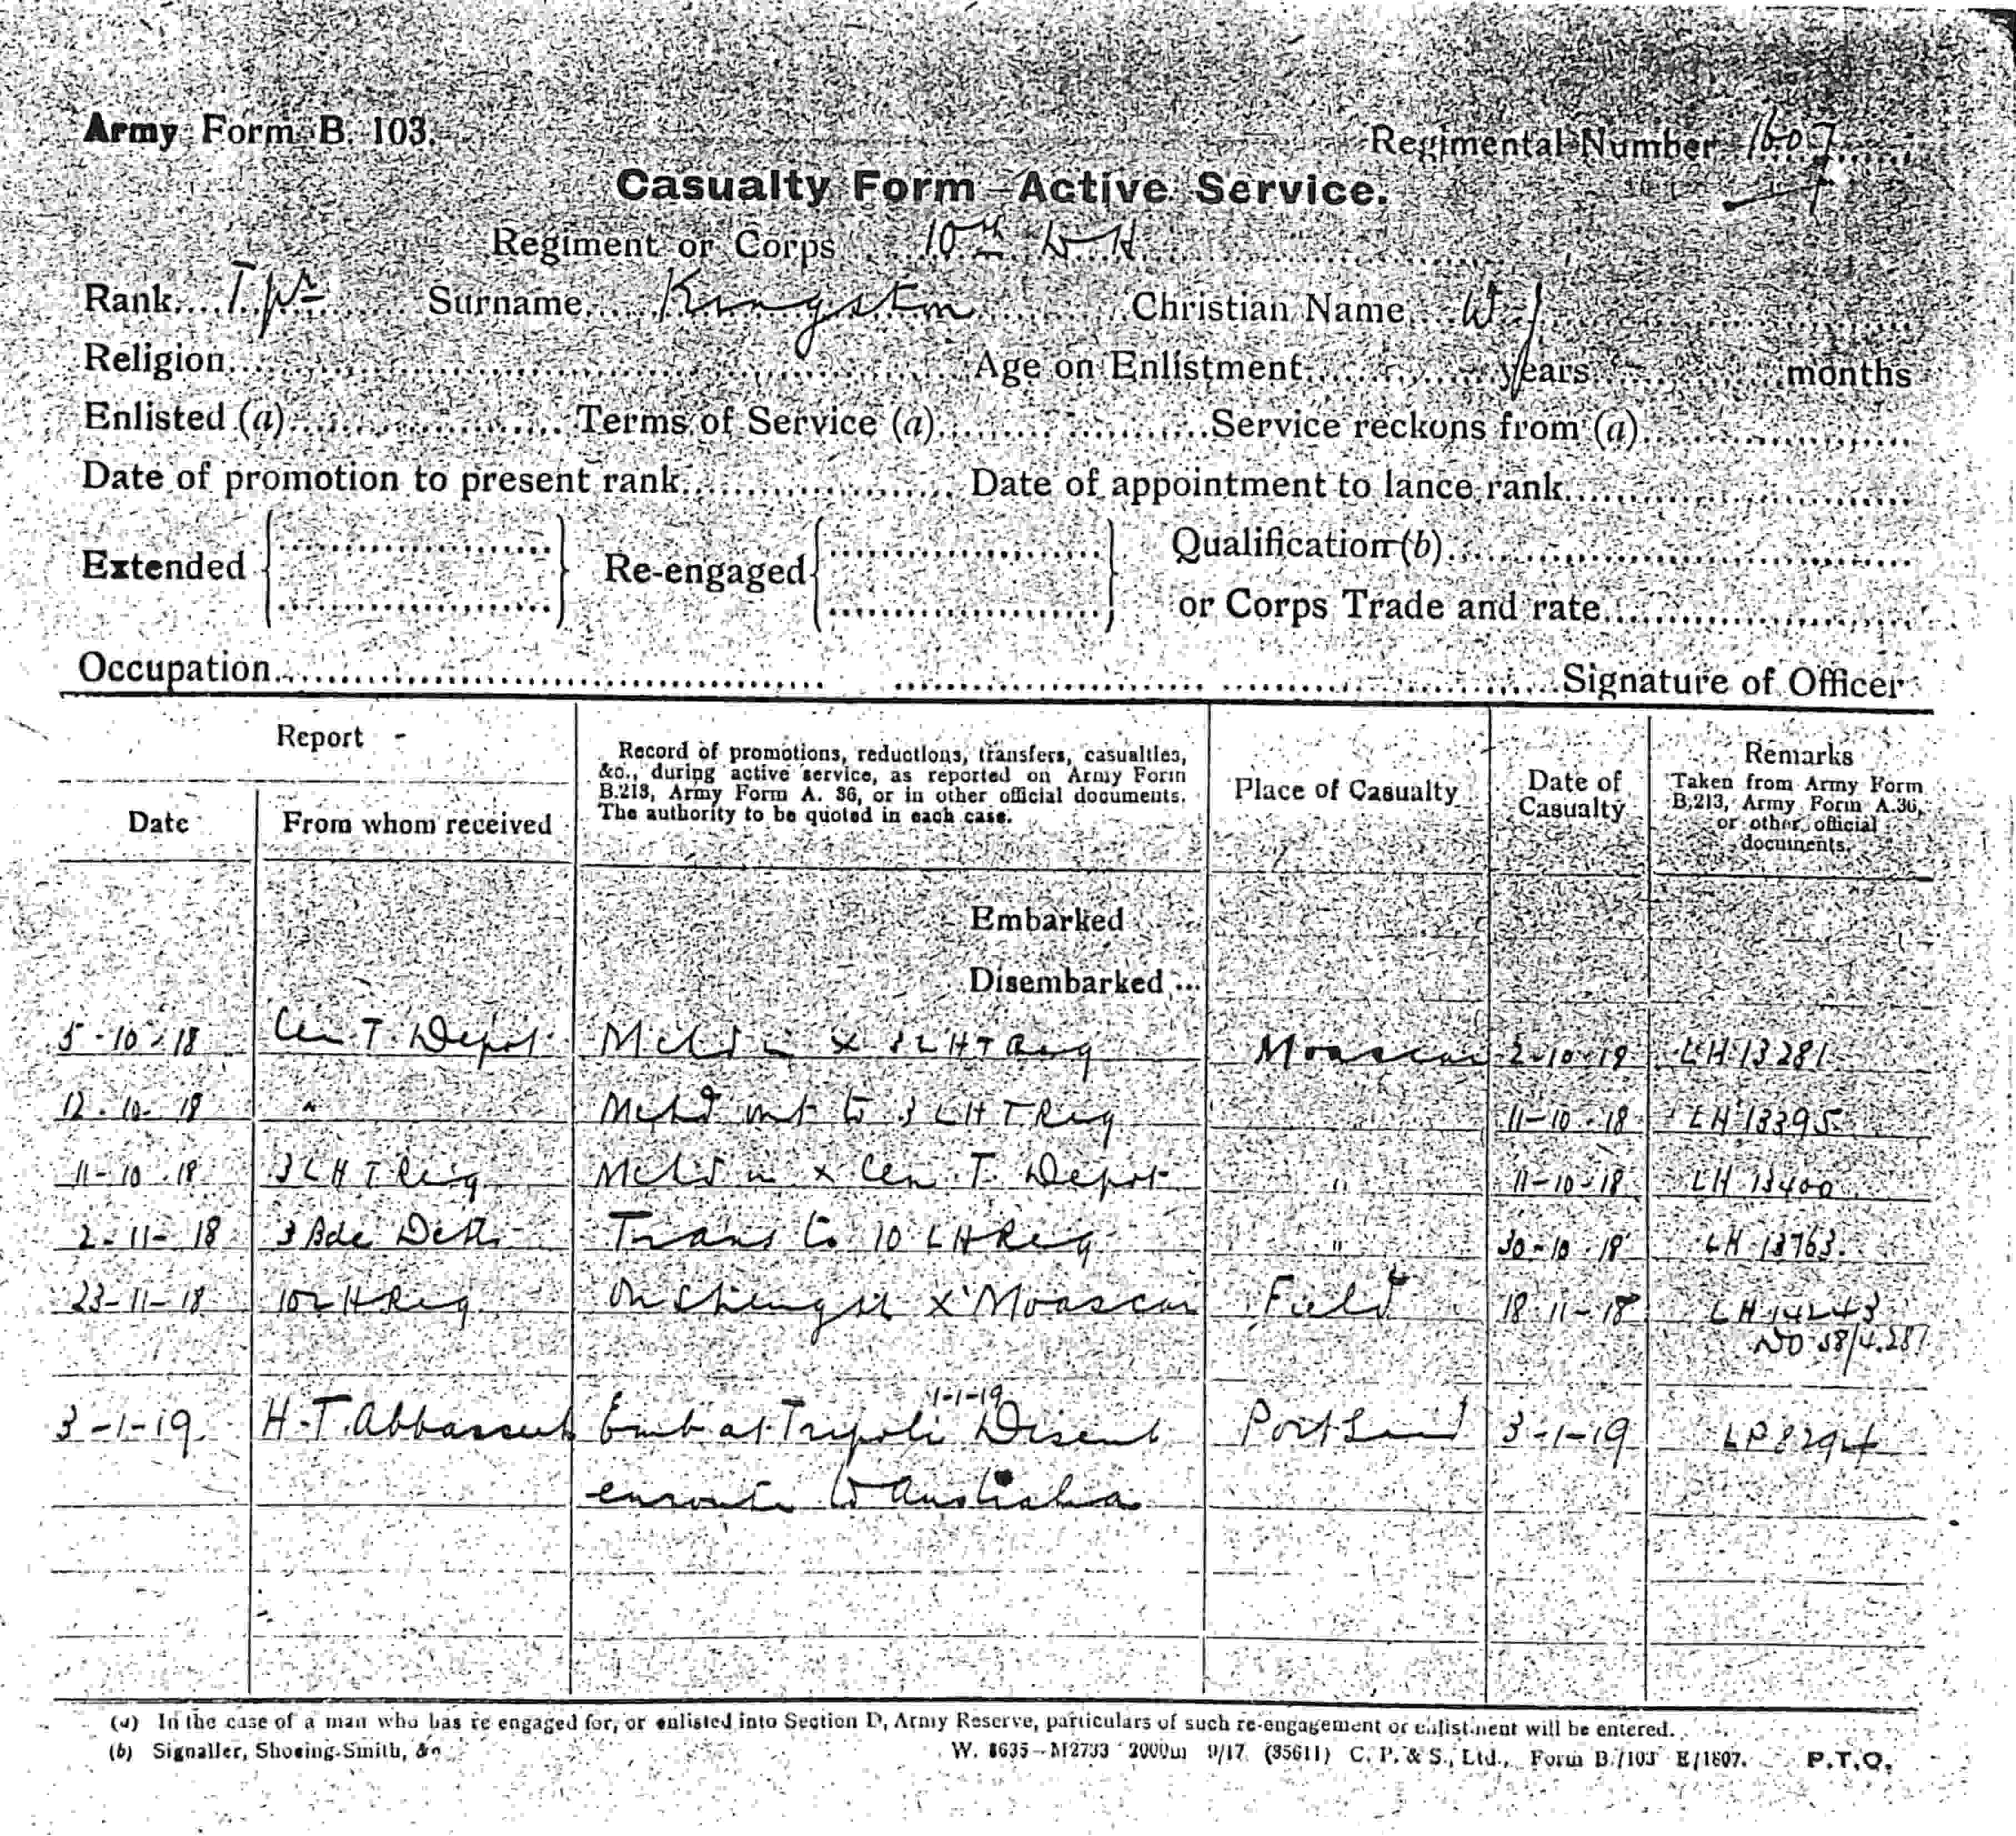 Army Form B. 103.
Regimental Number 1607
Casualty Form Active Service.
Regiment or Corps 10th L H
Rank Tpr Surname Kingston Christian Name W J
Religion Age on Enlistment years months
Enlisted (a) Terms of Service (a) Service reckons from (a)
Date of promotion to present rank Date of appointment to lance rank
Extended Re-engaged Qualification (b)
or Corps Trade and rate
Occupation Signature of Officer
Report
Date From whom received
Record of promotions, reductions, transfers, casualties,
&c., during active service, as reported on Army Form
B.213, Army Form A. 36, or in other official documents.
The authority to be quoted in each case.
Place of Casualty
Date of
Casualty
Remarks
Taken from Army Form
B.213, Army Form A.36,
or other official
documents.
Embarked
Disembarked ...
5-10-18 Cen T. Depot in x 3 L H T Reg Moascar LH 13281
12-10-18 " out to 3 L H T Reg 11-10-18 LH 13395
11-10-18 3 L H T Reg in x Cen. T. Depot " 11-10-18 LH 13400
2-11-18 3 Bde Dets Trans to 10 L H Reg " 30-10-18 LH 13763
23-11-18 10 L H Reg On Strength x Moascar Field 18-11-18 LH 14243
1-1-19
3-1-19 H.T. Emb at Tripoli Disemb Port Said 3-1-19 LP 8294
enroute to Australia
(a) In the case of a man who has re-engaged for, or enlisted into Section D, Army Reserve, particulars of such re-engagement or enlistment will be entered.
(b) Signaller, Shoeing-Smith, &c W. 8635-M2733 2000m 9/17 (35611) C. P. & S., Ltd., Form B./103 E/1807. P.T.O.